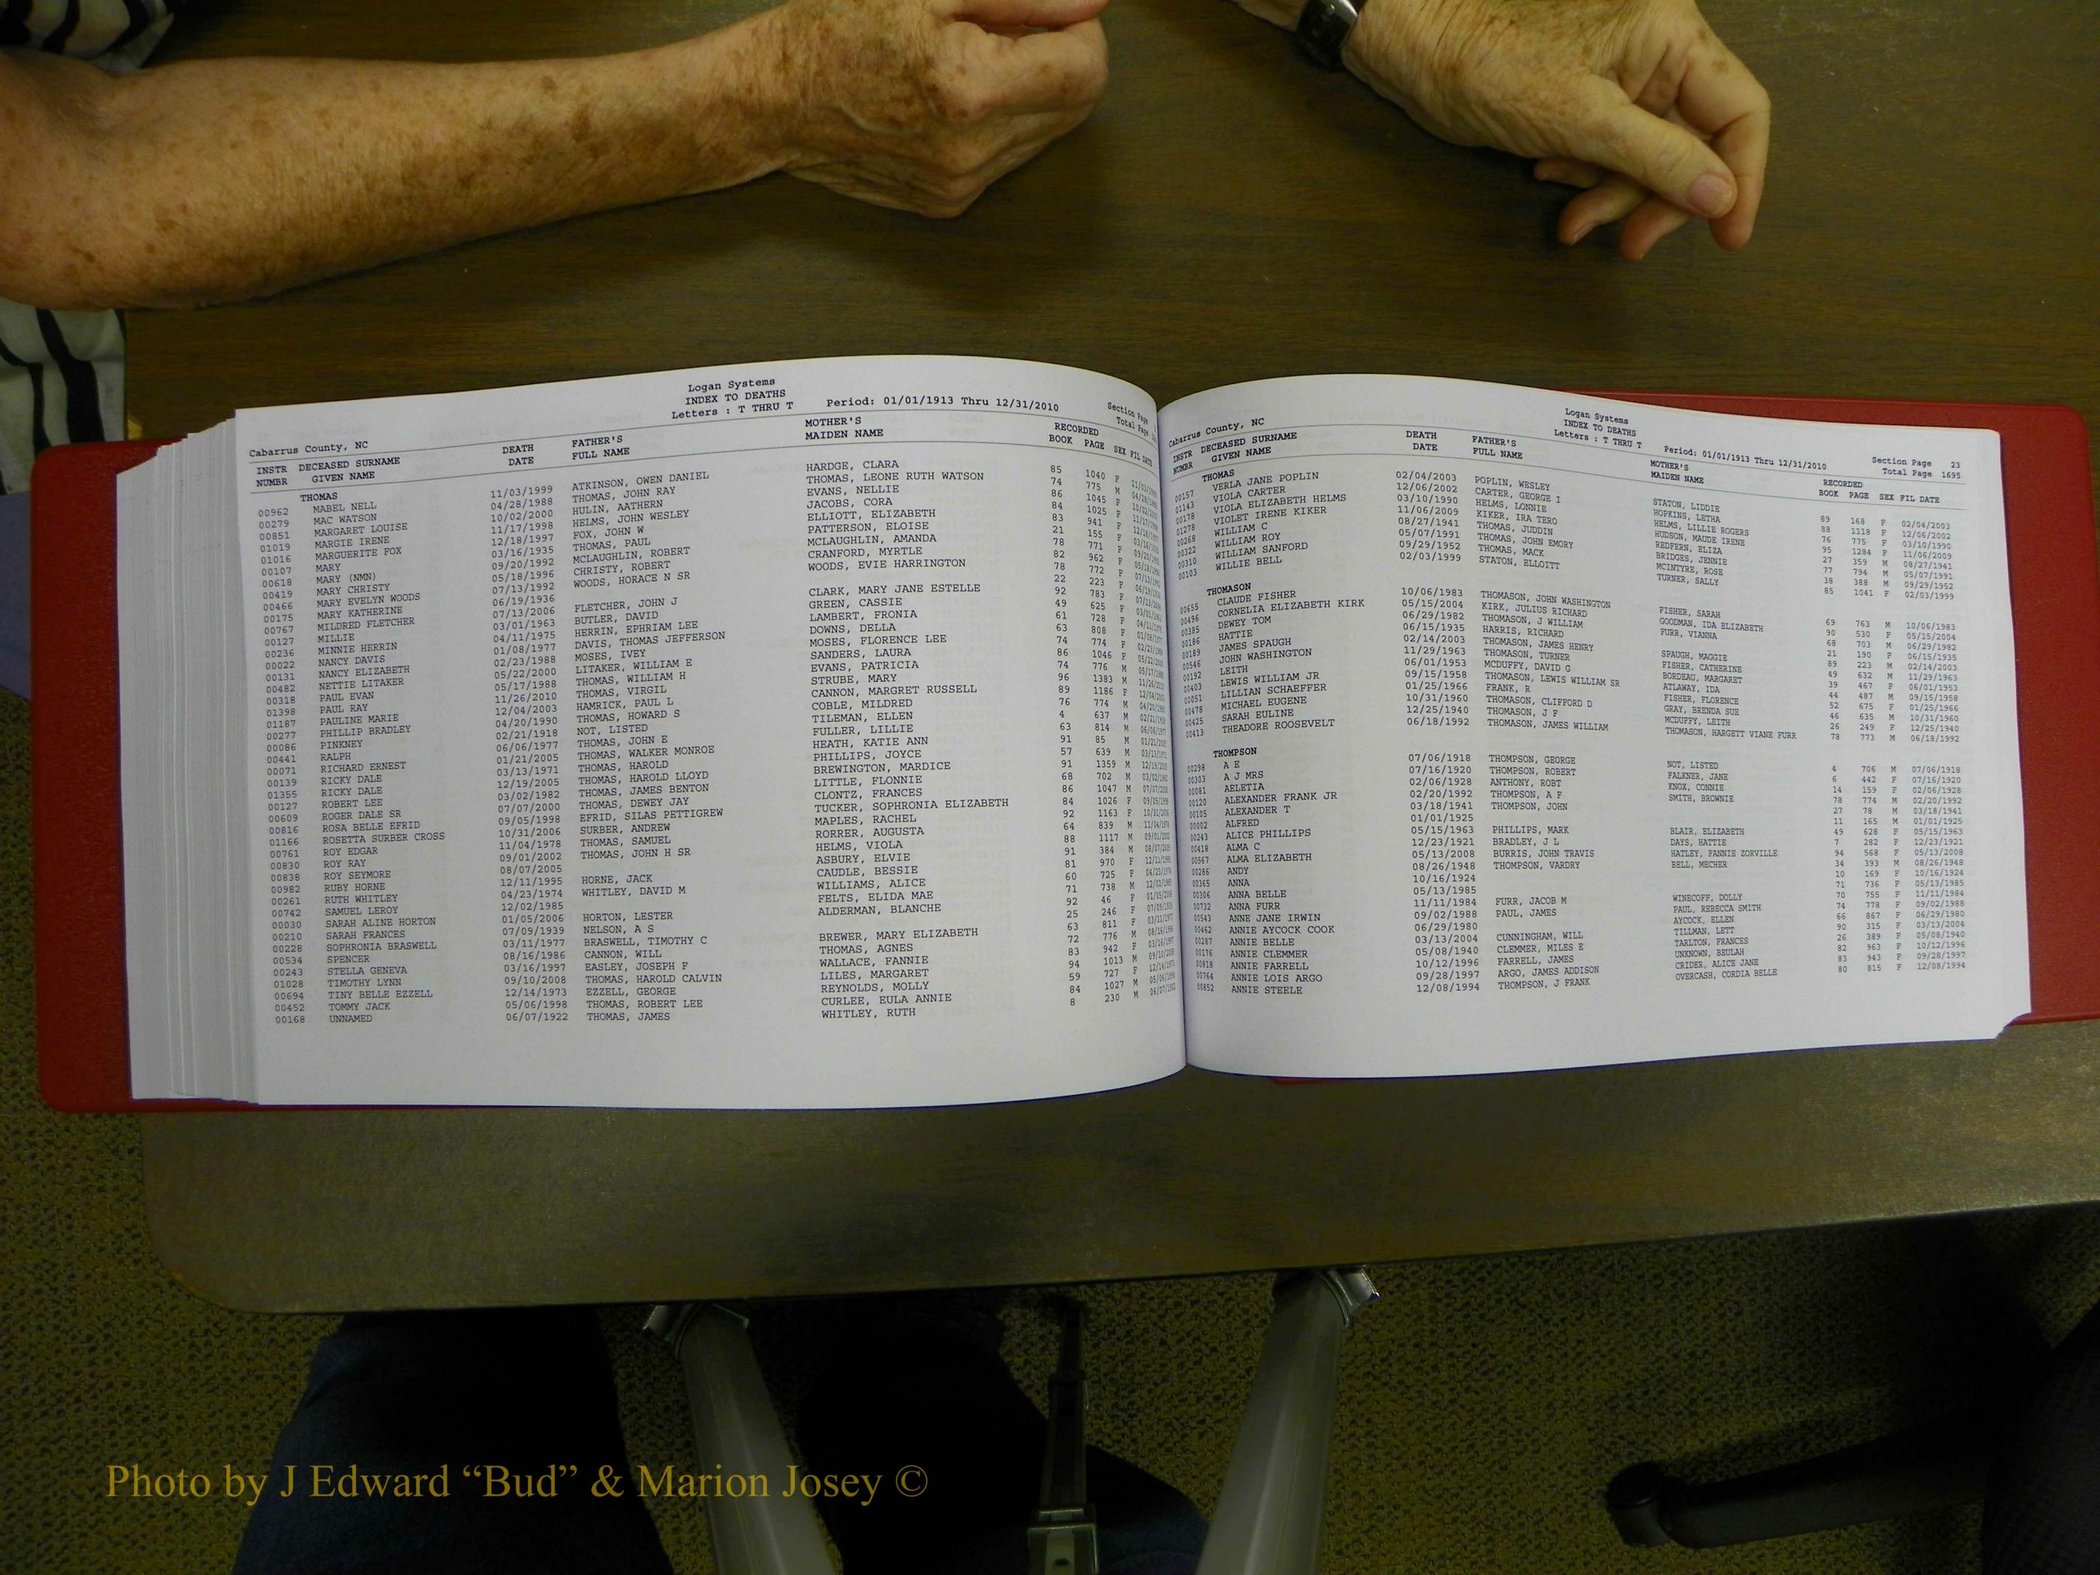 Logan Systems
INDEX TO DEATHS
Letters : T THRU T Period: 01/01/1913 Thru 12/31/2010 Section Page
Total Page
Cabarrus County, NC
INSTR DECEASED SURNAME DEATH FATHER'S MOTHER'S RECORDED
NUMBR GIVEN NAME DATE FULL NAME MAIDEN NAME BOOK PAGE SEX FIL DATE
THOMAS
00962 MABEL NELL 11/03/1999 ATKINSON, OWEN DANIEL HARDGE, CLARA 85 1040 F
00279 MAC WATSON 04/28/1988 THOMAS, JOHN RAY THOMAS, LEONE RUTH WATSON 74 775 M
00851 MARGARET LOUISE 10/02/2000 HULIN, AATHERN EVANS, NELLIE 86 1045 F
01019 MARGIE IRENE 11/17/1998 HELMS, JOHN WESLEY JACOBS, CORA 84 1025 F
01016 MARGUERITE FOX 12/18/1997 FOX, JOHN W ELLIOTT, ELIZABETH 83 941 F
00107 MARY 03/16/1935 THOMAS, PAUL PATTERSON, ELOISE 21 155 F
00618 MARY (NMN) 09/20/1992 MCLAUGHLIN, ROBERT MCLAUGHLIN, AMANDA 78 771 F
00419 MARY CHRISTY 05/18/1996 CHRISTY, ROBERT CRANFORD, MYRTLE 82 962 F
00466 MARY EVELYN WOODS 07/13/1992 WOODS, HORACE N SR WOODS, EVIE HARRINGTON 78 772 F
00175 MARY KATHERINE 06/19/1936 22 223 F
00767 MILDRED FLETCHER 07/13/2006 FLETCHER, JOHN J CLARK, MARY JANE ESTELLE 92 783 F
00127 MILLIE 03/01/1963 BUTLER, DAVID GREEN, CASSIE 49 625 F
00236 MINNIE HERRIN 04/11/1975 HERRIN, EPHRIAM LEE LAMBERT, FRONIA 61 728 F
00022 NANCY DAVIS 01/08/1977 DAVIS, THOMAS JEFFERSON DOWNS, DELLA 63 808 F
00131 NANCY ELIZABETH 02/23/1988 MOSES, IVEY MOSES, FLORENCE LEE 74 774 F
00482 NETTIE LITAKER 05/22/2000 LITAKER, WILLIAM E SANDERS, LAURA 86 1046 F
00318 PAUL EVAN 05/17/1988 THOMAS, WILLIAM H EVANS, PATRICIA 74 776 M
01398 PAUL RAY 11/26/2010 THOMAS, VIRGIL STRUBE, MARY 96 1383 M
01187 PAULINE MARIE 12/04/2003 HAMRICK, PAUL L CANNON, MARGRET RUSSELL 89 1186 F
00277 PHILLIP BRADLEY 04/20/1990 THOMAS, HOWARD S COBLE, MILDRED 76 774 M
00086 PINKNEY 02/21/1918 NOT, LISTED TILEMAN, ELLEN 4 637 M
00441 RALPH 06/06/1977 THOMAS, JOHN E FULLER, LILLIE 63 814 M
00071 RICHARD ERNEST 01/21/2005 THOMAS, WALKER MONROE HEATH, KATIE ANN 91 85 M
00139 RICKY DALE 03/13/1971 THOMAS, HAROLD PHILLIPS, JOYCE 57 639 M
01355 RICKY DALE 12/19/2005 THOMAS, HAROLD LLOYD BREWINGTON, MARDICE 91 1359 M
00127 ROBERT LEE 03/02/1982 THOMAS, JAMES BENTON LITTLE, FLONNIE 68 702 M
00609 ROGER DALE SR 07/07/2000 THOMAS, DEWEY JAY CLONTZ, FRANCES 86 1047 M
00816 ROSA BELLE EFRID 09/05/1998 EFRID, SILAS PETTIGREW TUCKER, SOPHRONIA ELIZABETH 84 1026 F
01166 ROSETTA SURBER CROSS 10/31/2006 SURBER, ANDREW MAPLES, RACHEL 92 1163 F
00761 ROY EDGAR 11/04/1978 THOMAS, SAMUEL RORRER, AUGUSTA 64 839 M
00830 ROY RAY 09/01/2002 THOMAS, JOHN H SR HELMS, VIOLA 88 1117 M
00838 ROY SEYMORE 08/07/2005 ASBURY, ELVIE 91 384 M
00982 RUBY HORNE 12/11/1995 HORNE, JACK CAUDLE, BESSIE 81 970 F
00261 RUTH WHITLEY 04/23/1974 WHITLEY, DAVID M WILLIAMS, ALICE 60 725 F
00742 SAMUEL LEROY 12/02/1985 FELTS, ELIDA MAE 71 738 M
00030 SARAH ALINE HORTON 01/05/2006 HORTON, LESTER ALDERMAN, BLANCHE 92 46 F
00210 SARAH FRANCES 07/09/1939 NELSON, A S 25 246 F
00228 SOPHRONIA BRASWELL 03/11/1977 BRASWELL, TIMOTHY C BREWER, MARY ELIZABETH 63 811 F
00534 SPENCER 08/16/1986 CANNON, WILL THOMAS, AGNES 72 776 M
00243 STELLA GENEVA 03/16/1997 EASLEY, JOSEPH F WALLACE, FANNIE 83 942 F
01028 TIMOTHY LYNN 09/10/2008 THOMAS, HAROLD CALVIN LILES, MARGARET 94 1013 M
00694 TINY BELLE EZZELL 12/14/1973 EZZELL, GEORGE REYNOLDS, MOLLY 59 727 F
00452 TOMMY JACK 05/06/1998 THOMAS, ROBERT LEE CURLEE, EULA ANNIE 84 1027 M
00168 UNNAMED 06/07/1922 THOMAS, JAMES WHITLEY, RUTH 8 230 M
Logan Systems
INDEX TO DEATHS
Letters : T THRU T Period: 01/01/1913 Thru 12/31/2010 Section Page 23
Total Page 1695
Cabarrus County, NC
INSTR DECEASED SURNAME DEATH FATHER'S MOTHER'S RECORDED
NUMBR GIVEN NAME DATE FULL NAME MAIDEN NAME BOOK PAGE SEX FIL DATE
THOMAS
00157 VERLA JANE POPLIN 02/04/2003 POPLIN, WESLEY STATON, LIDDIE 89 168 F 02/04/2003
01143 VIOLA CARTER 12/06/2002 CARTER, GEORGE I HOPKINS, LETHA 88 1118 F 12/06/2002
00178 VIOLA ELIZABETH HELMS 03/10/1990 HELMS, LONNIE HELMS, LILLIE ROGERS 76 775 F 03/10/1990
01278 VIOLET IRENE KIKER 11/06/2009 KIKER, IRA TERO HUDSON, MAUDE IRENE 95 1284 F 11/06/2009
00268 WILLIAM C 08/27/1941 THOMAS, JUDDIN REDFERN, ELIZA 27 359 M 08/27/1941
00322 WILLIAM ROY 05/07/1991 THOMAS, JOHN EMORY BRIDGES, JENNIE 77 794 M 05/07/1991
00310 WILLIAM SANFORD 09/29/1952 THOMAS, MACK MCINTYRE, ROSE 38 388 M 09/29/1952
00103 WILLIE BELL 02/03/1999 STATON, ELLOITT TURNER, SALLY 85 1041 F 02/03/1999
THOMASON
00655 CLAUDE FISHER 10/06/1983 THOMASON, JOHN WASHINGTON FISHER, SARAH 69 763 M 10/06/1983
00496 CORNELIA ELIZABETH KIRK 05/15/2004 KIRK, JULIUS RICHARD GOODMAN, IDA ELIZABETH 90 530 F 05/15/2004
00385 DEWEY TOM 06/29/1982 THOMASON, J WILLIAM FURR, VIANNA 68 703 M 06/29/1982
00186 HATTIE 06/15/1935 HARRIS, RICHARD 21 190 F 06/15/1935
00189 JAMES SPAUGH 02/14/2003 THOMASON, JAMES HENRY SPAUGH, MAGGIE 89 223 M 02/14/2003
00546 JOHN WASHINGTON 11/29/1963 THOMASON, TURNER FISHER, CATHERINE 49 632 M 11/29/1963
00192 LEITH 06/01/1953 MCDUFFY, DAVID G BORDEAU, MARGARET 39 467 F 06/01/1953
00403 LEWIS WILLIAM JR 09/15/1958 THOMASON, LEWIS WILLIAM SR ATLAWAY, IDA 44 487 M 09/15/1958
00051 LILLIAN SCHAEFFER 01/25/1966 FRANK, R FISHER, FLORENCE 52 675 F 01/25/1966
00478 MICHAEL EUGENE 10/31/1960 THOMASON, CLIFFORD D GRAY, BRENDA SUE 46 635 M 10/31/1960
00425 SARAH EULINE 12/25/1940 THOMASON, J F MCDUFFY, LEITH 26 249 F 12/25/1940
00413 THEADORE ROOSEVELT 06/18/1992 THOMASON, JAMES WILLIAM THOMASON, HARGETT VIANE FURR 78 773 M 06/18/1992
THOMPSON
00298 A E 07/06/1918 THOMPSON, GEORGE NOT, LISTED 4 706 M 07/06/1918
00303 A J MRS 07/16/1920 THOMPSON, ROBERT FALKNER, JANE 6 442 F 07/16/1920
00081 AELETIA 02/06/1928 ANTHONY, ROBT KNOX, CONNIE 14 159 F 02/06/1928
00120 ALEXANDER FRANK JR 02/20/1992 THOMPSON, A F SMITH, BROWNIE 78 774 M 02/20/1992
00105 ALEXANDER T 03/18/1941 THOMPSON, JOHN 27 78 M 03/18/1941
00002 ALFRED 01/01/1925 11 165 M 01/01/1925
00243 ALICE PHILLIPS 05/15/1963 PHILLIPS, MARK BLAIR, ELIZABETH 49 628 F 05/15/1963
00418 ALMA C 12/23/1921 BRADLEY, J L DAYS, HATTIE 7 282 F 12/23/1921
00567 ALMA ELIZABETH 05/13/2008 BURRIS, JOHN TRAVIS HATLEY, FANNIE ZORVILLE 94 568 F 05/13/2008
00286 ANDY 08/26/1948 THOMPSON, VARDRY BELL, MECHER 34 393 M 08/26/1948
00365 ANNA 10/16/1924 10 169 F 10/16/1924
00306 ANNA BELLE 05/13/1985 71 736 F 05/13/1985
00732 ANNA FURR 11/11/1984 FURR, JACOB M WINECOFF, DOLLY 70 755 F 11/11/1984
00543 ANNE JANE IRWIN 09/02/1988 PAUL, JAMES PAUL, REBECCA SMITH 74 778 F 09/02/1988
00462 ANNIE AYCOCK COOK 06/29/1980 AYCOCK, ELLEN 66 867 F 06/29/1980
00287 ANNIE BELLE 03/13/2004 CUNNINGHAM, WILL TILLMAN, LETT 90 315 F 03/13/2004
00176 ANNIE CLEMMER 05/08/1940 CLEMMER, MILES E TARLTON, FRANCES 26 389 F 05/08/1940
00818 ANNIE FARRELL 10/12/1996 FARRELL, JAMES UNKNOWN, BEULAH 82 963 F 10/12/1996
00764 ANNIE LOIS ARGO 09/28/1997 ARGO, JAMES ADDISON CRIDER, ALICE JANE 83 943 F 09/28/1997
00852 ANNIE STEELE 12/08/1994 THOMPSON, J FRANK OVERCASH, CORDIA BELLE 80 815 F 12/08/1994
Photo by J Edward “Bud” & Marion Josey ©